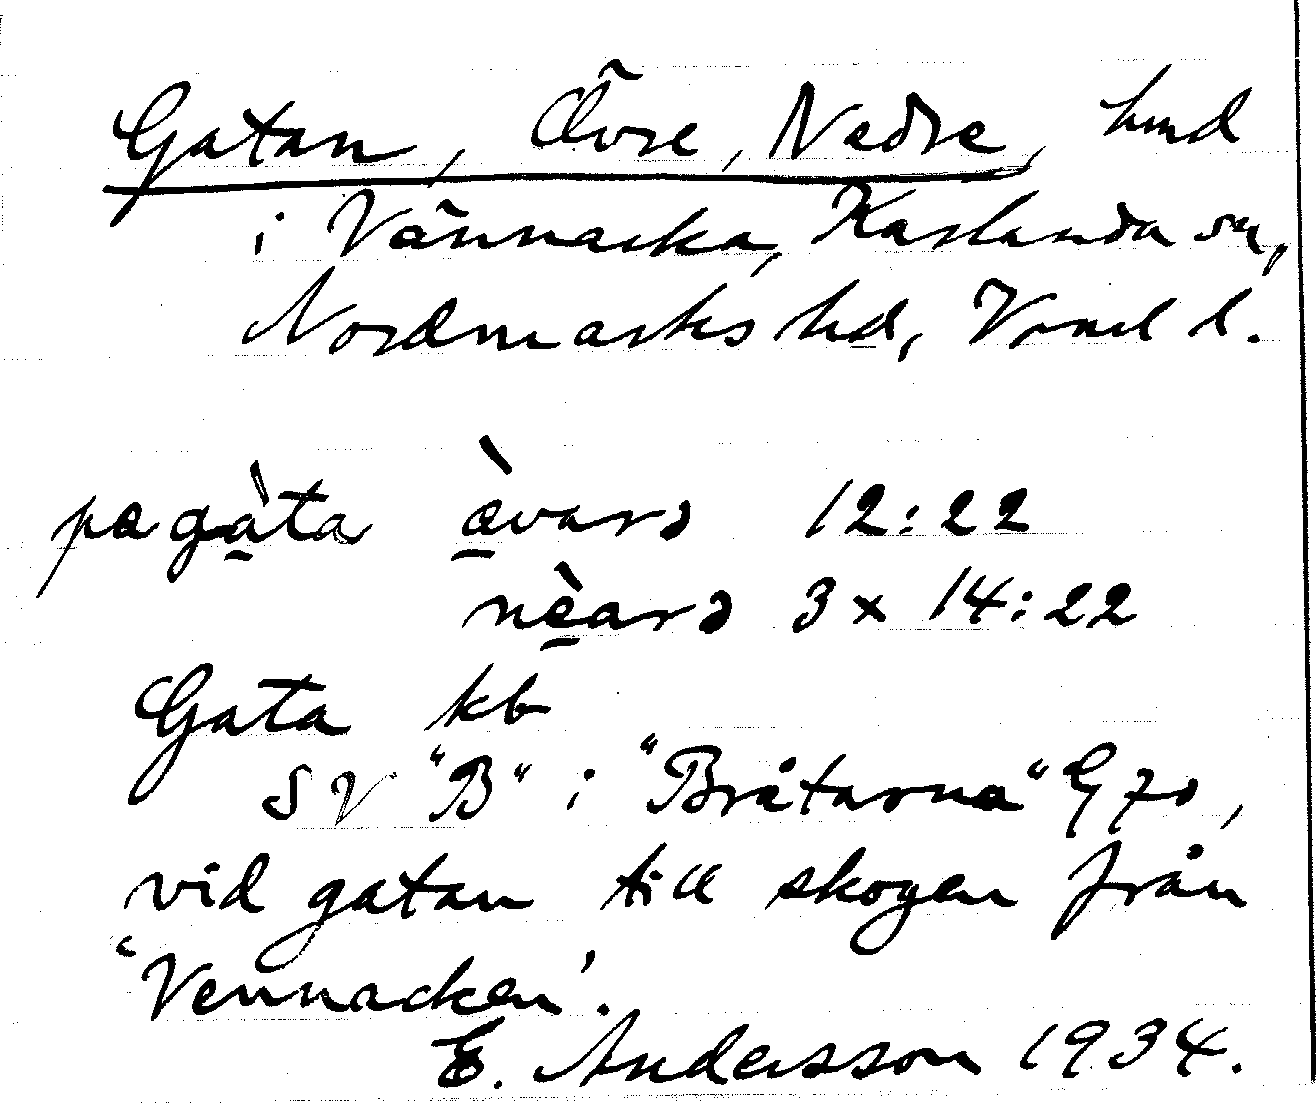 Gatan, Övre, Nedre, hmd
i Vännacka, Karlanda sn,
Nordmarks hd, Vrml l.
pa gàta ævarə 12:22
nèarə 3 x 14:22
Gata kb
SV "B" i "Bråtarna" G 70,
vid gatan till skogen från
'Vennacken'.
E. Andersson 1934.